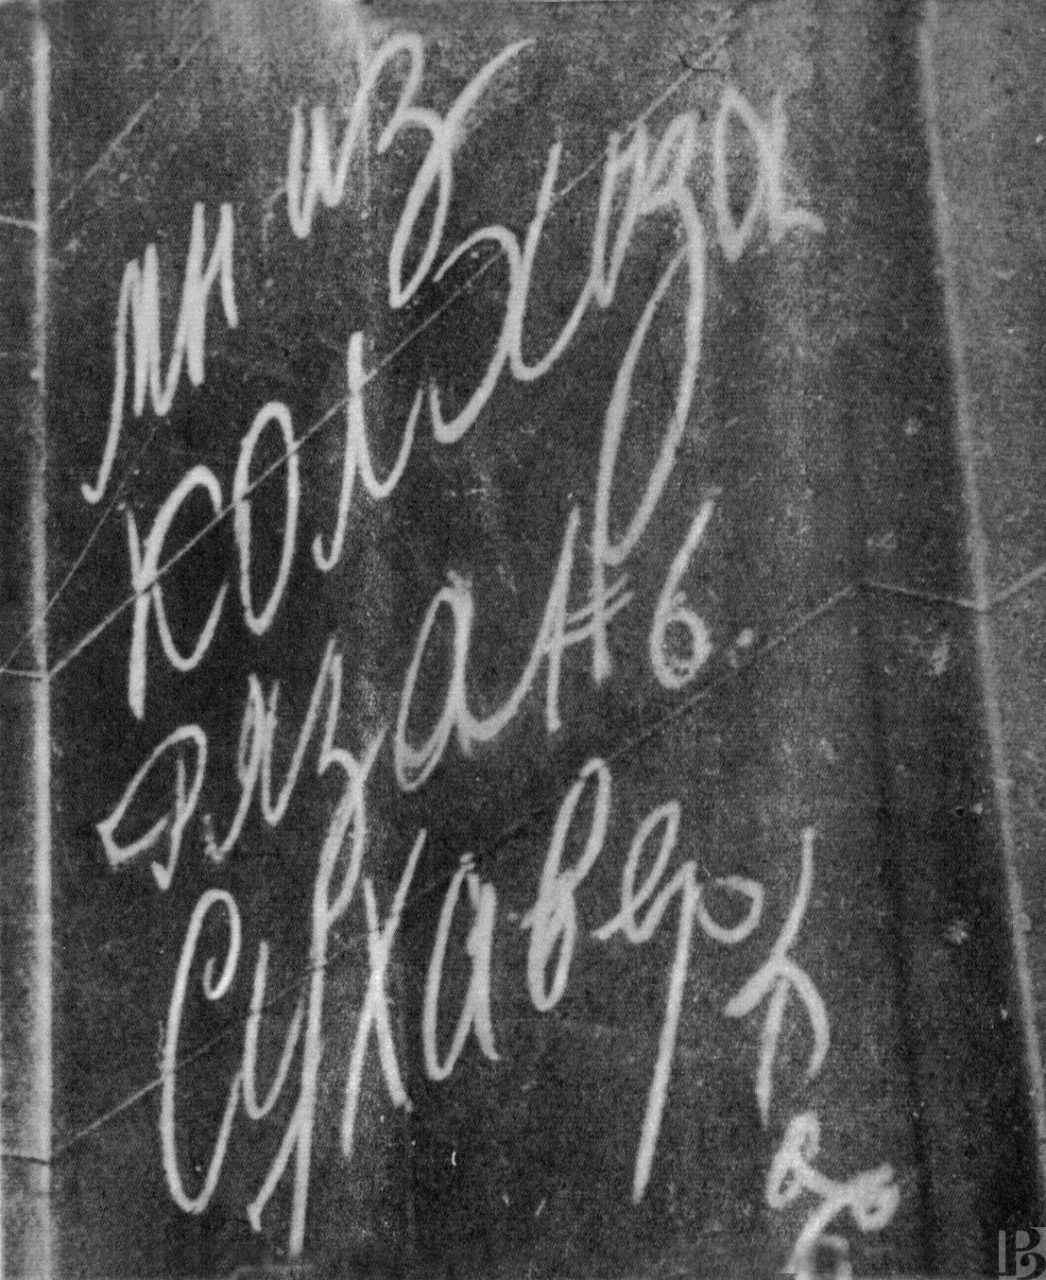 мы из
колхоза
Рязань.
Сухаверхов